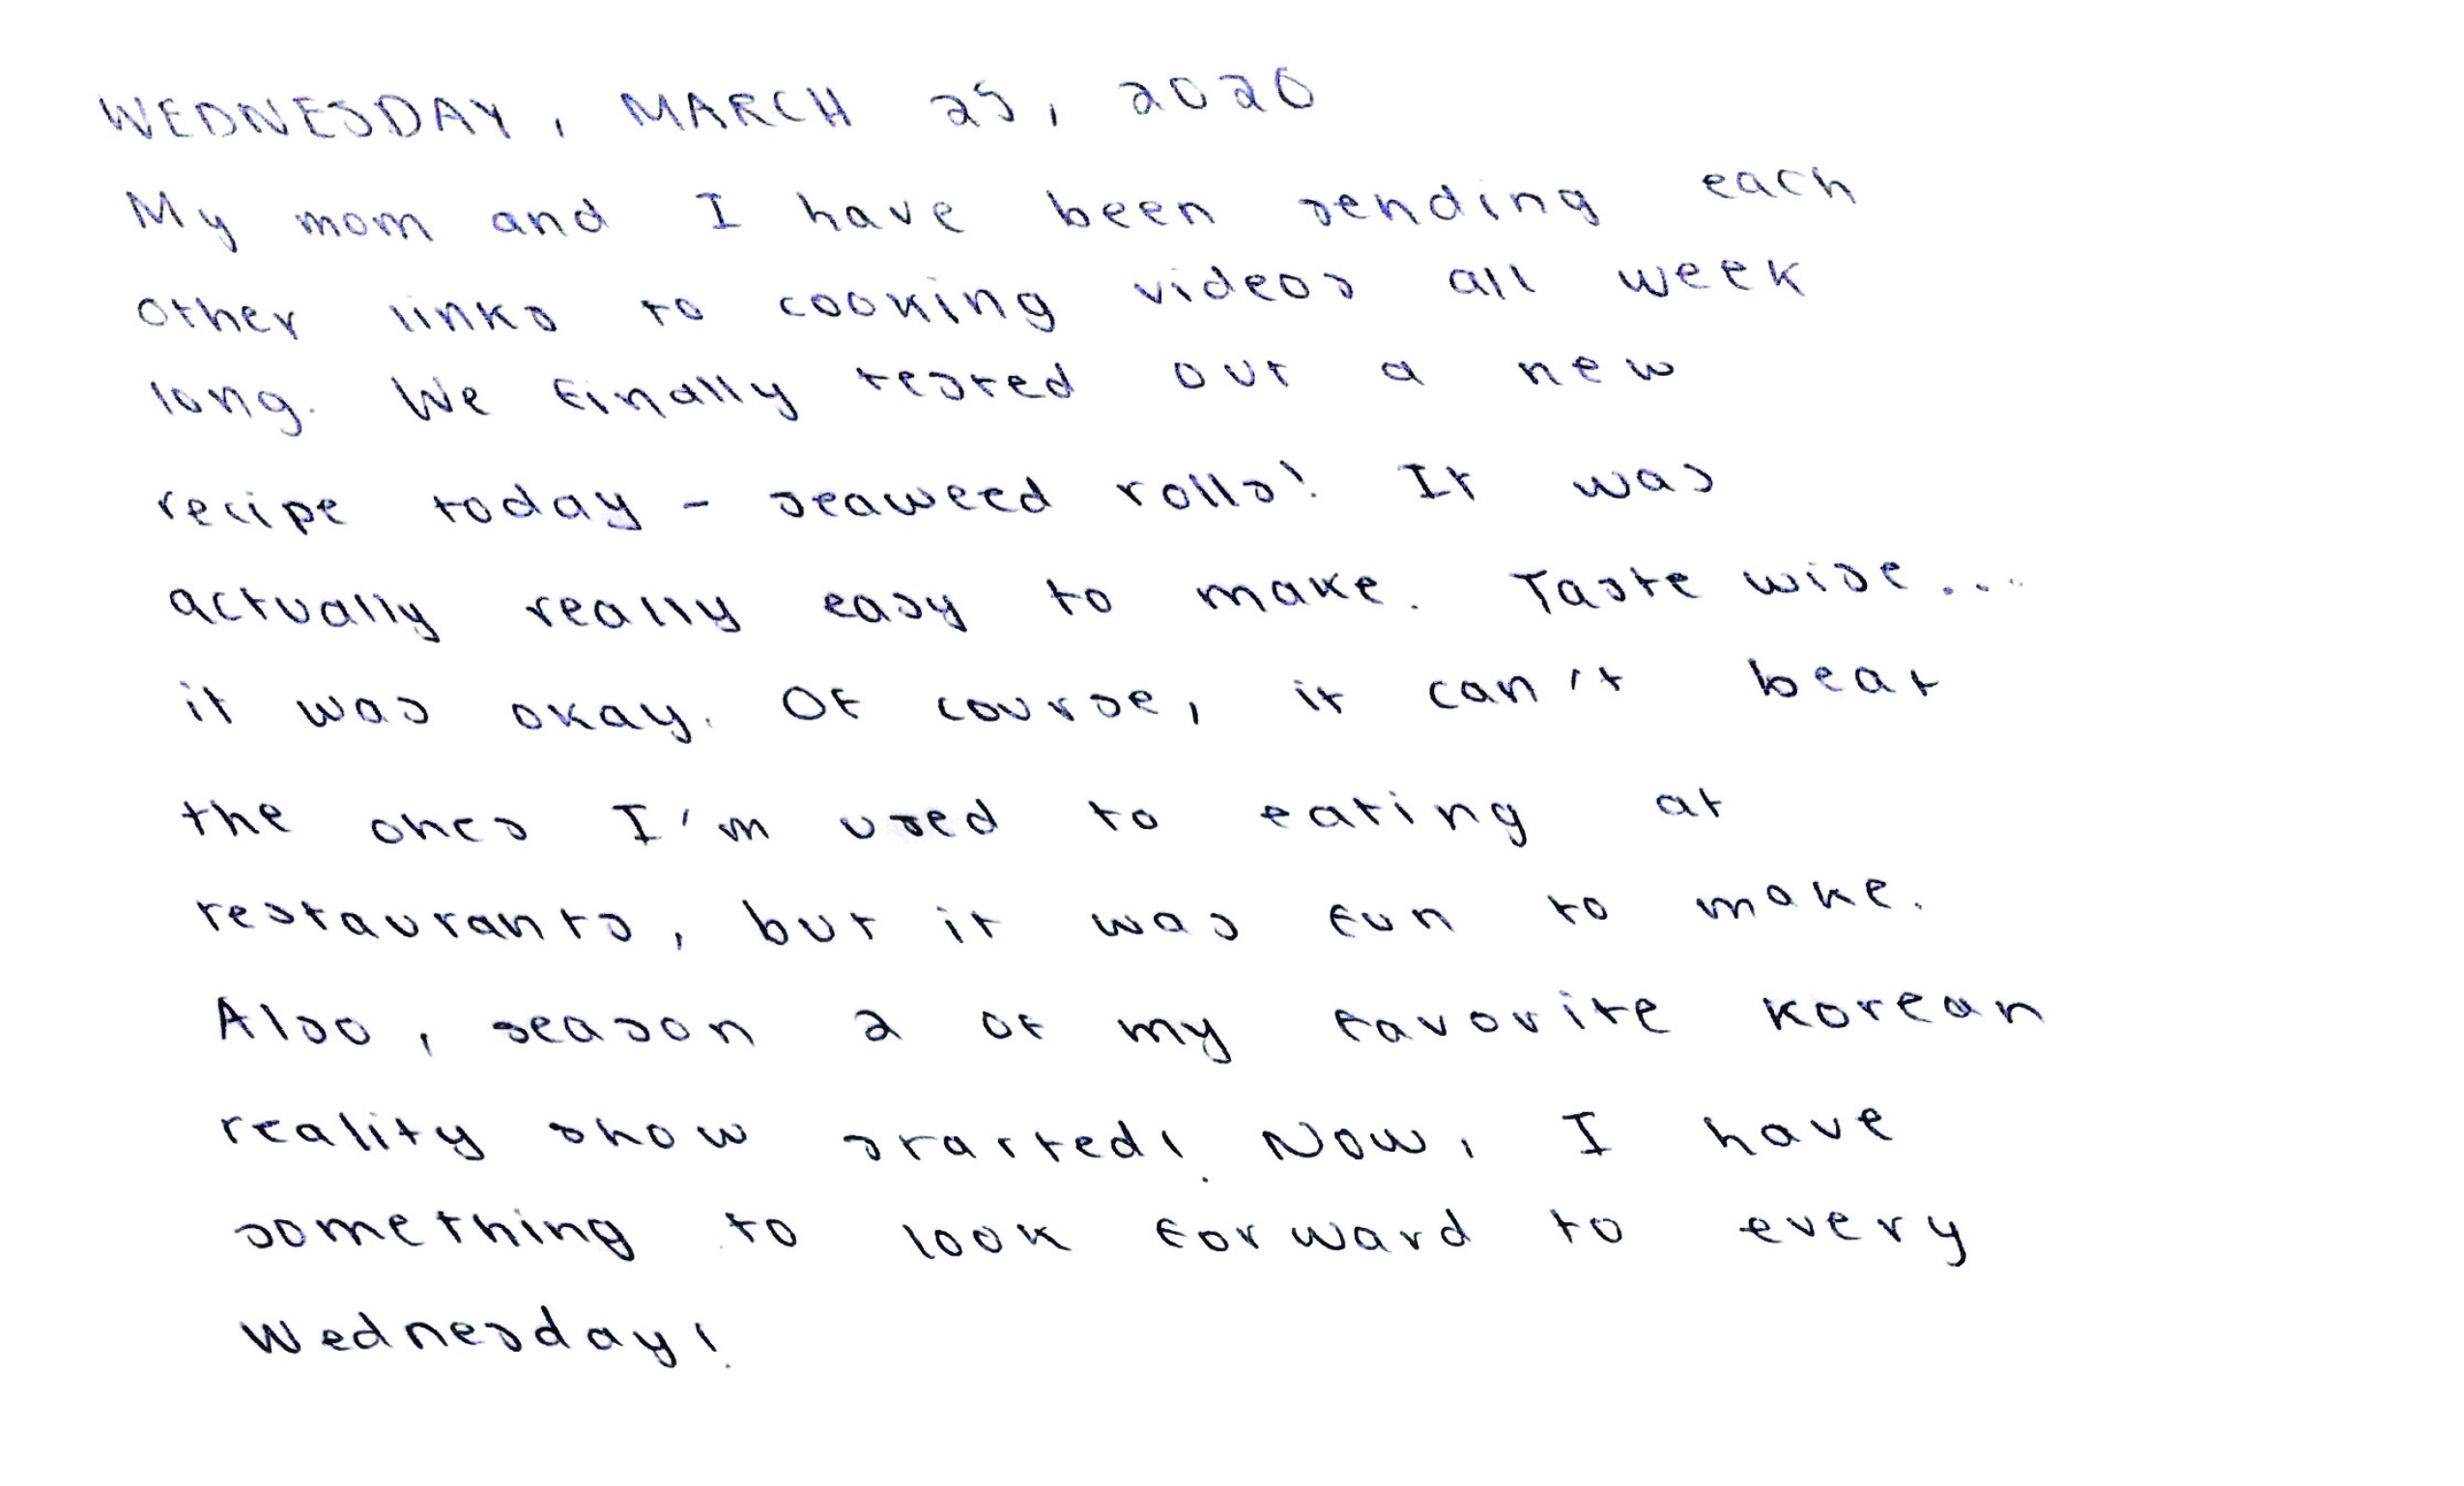 WEDNESDAY, MARCH 25, 2020
My mom and I have been sending each
other links to cooking videos all week
long. We finally tested out a new
recipe today - seaweed rolls! It was
actually really easy to make. Taste wise...
it was okay. Of course, it can't beat
the ones I'm used to eating at
restaurants, but it was fun to make.
Also, season 2 of my favorite Korean
reality show started! Now, I have
something to look forward to every
Wednesday!